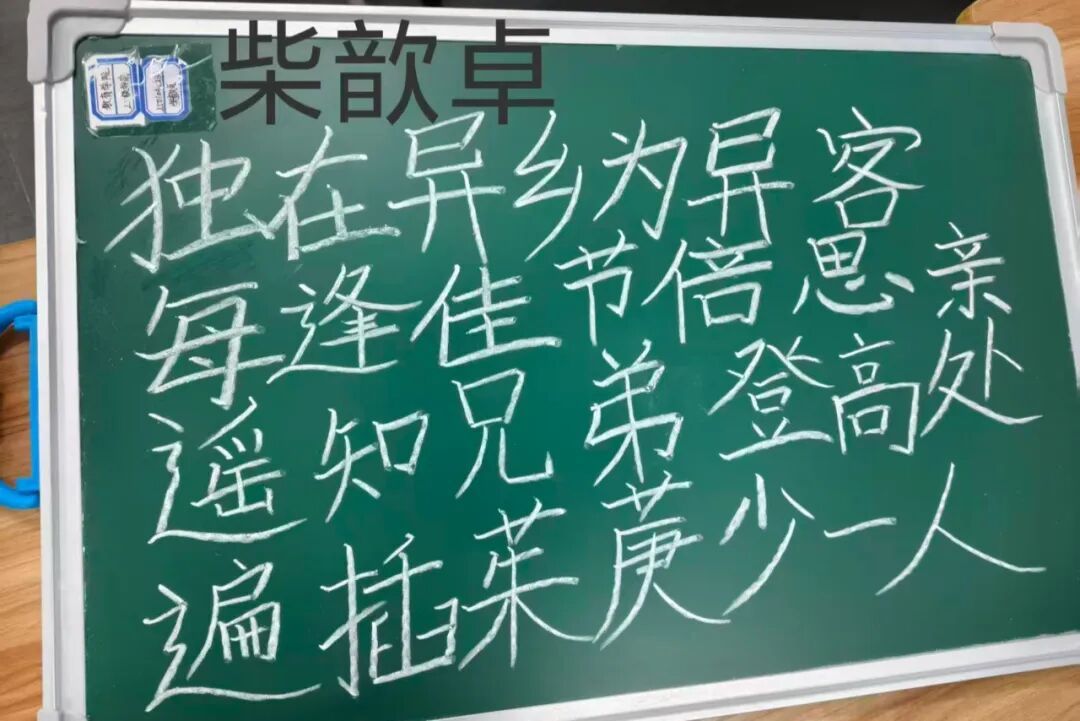 柴歆卓
独在异乡为异客
每逢佳节倍思亲
遥知兄弟登高处
遍插茱萸少一人